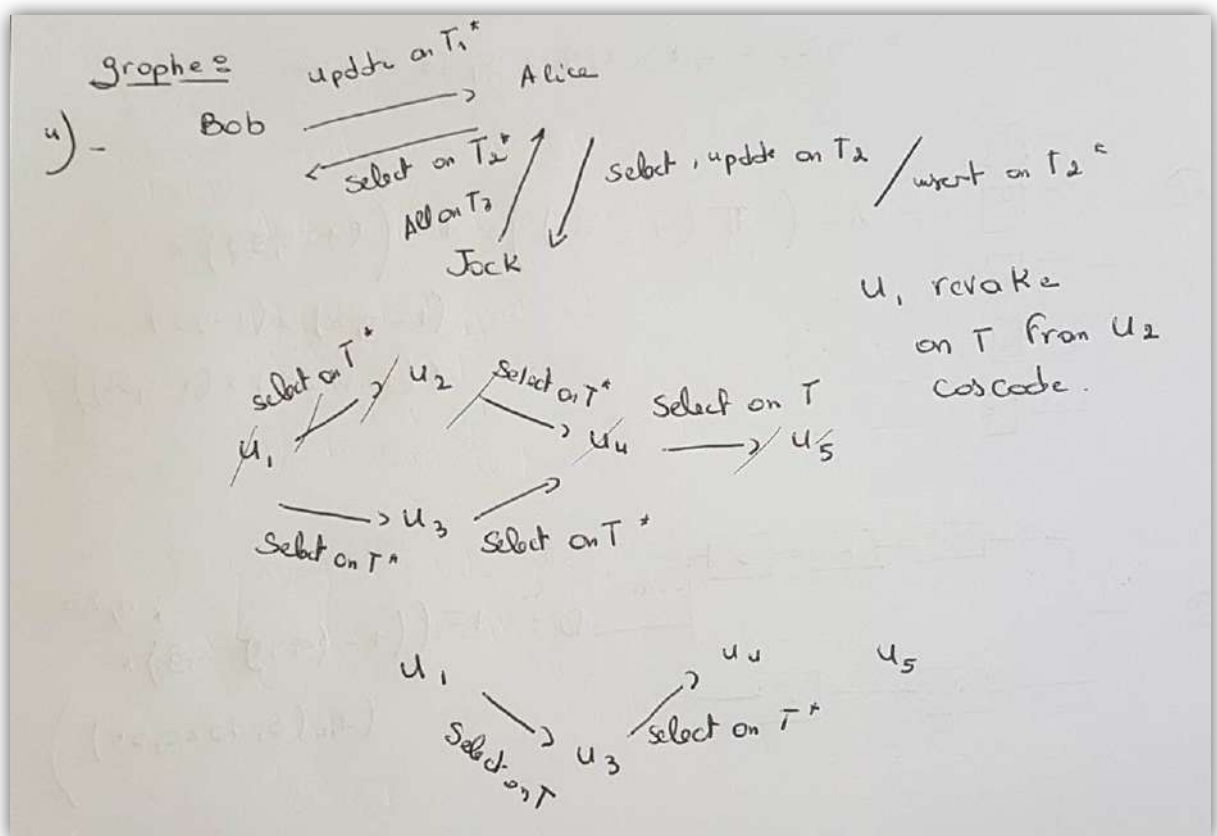 graphe :
update on T1*
4) - Bob Alice
select on T2*
select, update on T2 / insert on T2*
All on T3
Jack
U1 revoke
on T from U2
cascade.
select on T*
U2
select on T*
select on T
U1 U4 U5
U3
select on T* select on T*
U1 U4 U5
select on T
U3
select on T*